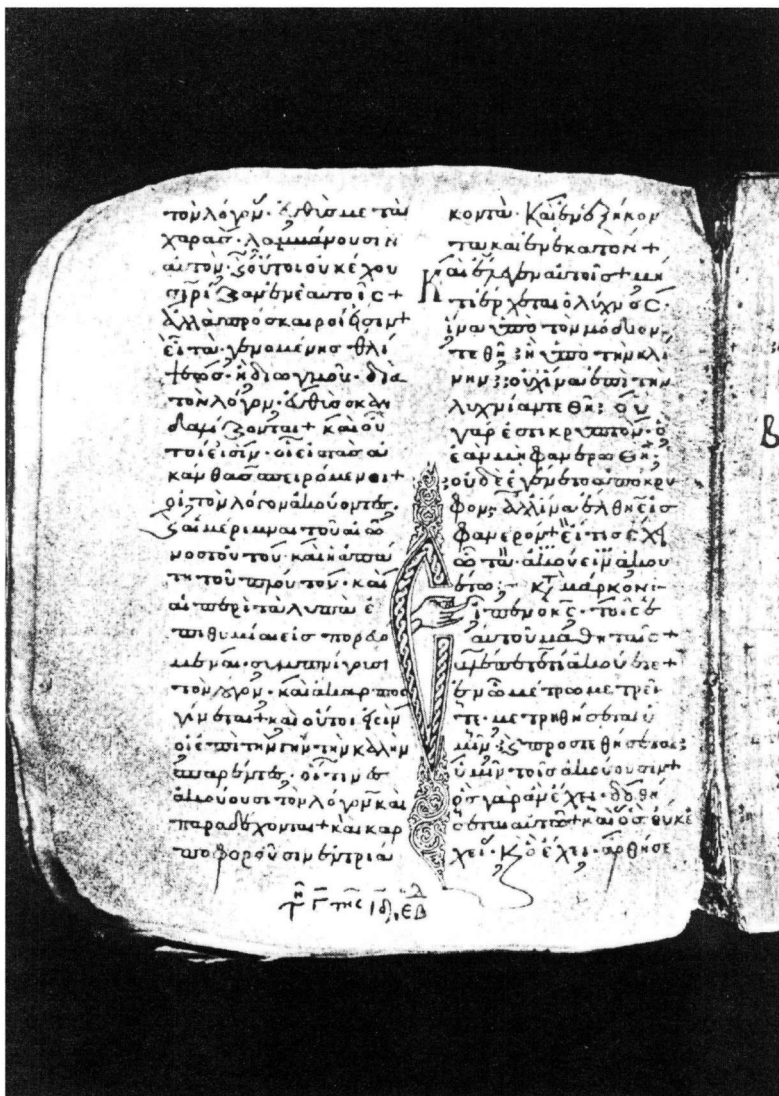 τὸν λόγον· εὐθὺς μετὰ
χαρᾶς· λαμμάνουσιν
αὐτὸν· ϗ οὗτοι οὐκ ἔχου
σι ρίζαν ἐν ἑαυτοῖς +
ἀλλὰ πρόσκαιροί εἰσιν +
εἶτα γενομένης θλί
ψεως· ἢ διωγμοῦ· διὰ
τὸν λόγον· εὐθὺς σκαν
δαλίζονται + καὶ οὗ
τοί εἰσιν· οἱ εἰς τὰς ἀ
κάνθας σπειρόμενοι +
οἱ τὸν λόγον ἀκούοντες·
ϗ αἱ μέριμναι τοῦ αἰῶ
νος τούτου· καὶ ἡ ἀπά
τη τοῦ πλούτου· καὶ
αἱ περὶ τὰ λυπὰ ἐ
πιθυμίαι εἰσπορευό
μεναι· συμπνίγουσι
τὸν λόγον· καὶ ἄκαρπος
γίνεται + καὶ οὗτοί εἰσιν
οἱ ἐπὶ τὴν γῆν τὴν καλὴν
σπαρέντες· οἵτινες
ἀκούουσι τὸν λόγον καὶ
παραδέχονται + καὶ καρ
ποφοροῦσιν ἐν τριά
κοντα· Καὶ ἐν ἑξήκον
τα καὶ ἐν ἑκατόν +
Καὶ ἔλεγεν αὐτοῖς + μή
τι ἔρχεται ὁ λύχνος·
ἵνα ὑπὸ τὸν μόδιον·
τεθῆ; ἢ ὑπὸ τὴν κλί
νην; οὐχ ἵνα ἐπὶ τὴν
λυχνίαν τεθῆ; οὐ
γάρ ἐστι κρυπτὸν· ὃ
ἐὰν μὴ φανερωθῆ·
οὐδὲ ἐγένετο ἀπόκρυ
φον; ἀλλ' ἵνα ἔλθη εἰς
φανερόν + εἴ τις ἔχει
ὦτα ἀκούειν ἀκου
έτω :– κτ μάρκον :–
εἶπεν ὁ κς· τοῖς ἑ
αυτοῦ μαθηταῖς +
βλέπετε τί ἀκούετε +
ἐν ὧ μέτρω μετρεῖ
τε· μετρηθήσεται ὑ
μῖν; ϗ προστεθήσεται;
ὑμῖν· τοῖς ἀκούουσιν +
ὃς γὰρ ἂν ἔχει· δοθή
σεται αὐτῶ + καὶ ὃς οὐκ ἔ
χει· Κ ὃ ἔχει· ἀρθήσε